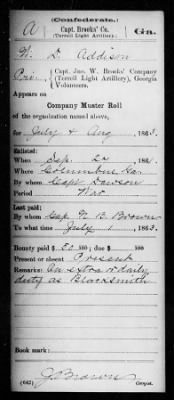 (Confederate.)
A Capt. Brooks' Co. Ga.
(Terrell Light Artillery).
W. D. Addison
Pri, Capt. Jno. W. Brooks' Company
(Terrell Light Artillery), Georgia
Volunteers.
Appears on
Company Muster Roll
of the organization named above,
for July & Aug, 1863.
Enlisted:
When Sep. 22, 1861.
Where Columbus Ga.
By whom Capt Dawson
Period War
Last paid:
By whom Cap. N. B. Brown
To what time July 1, 1863.
Bounty paid $ 50 /100; due $ /100
Present or absent Present
Remarks: On extra or daily
duty as Blacksmith
Book mark:
J Brown
(642) Copyist.